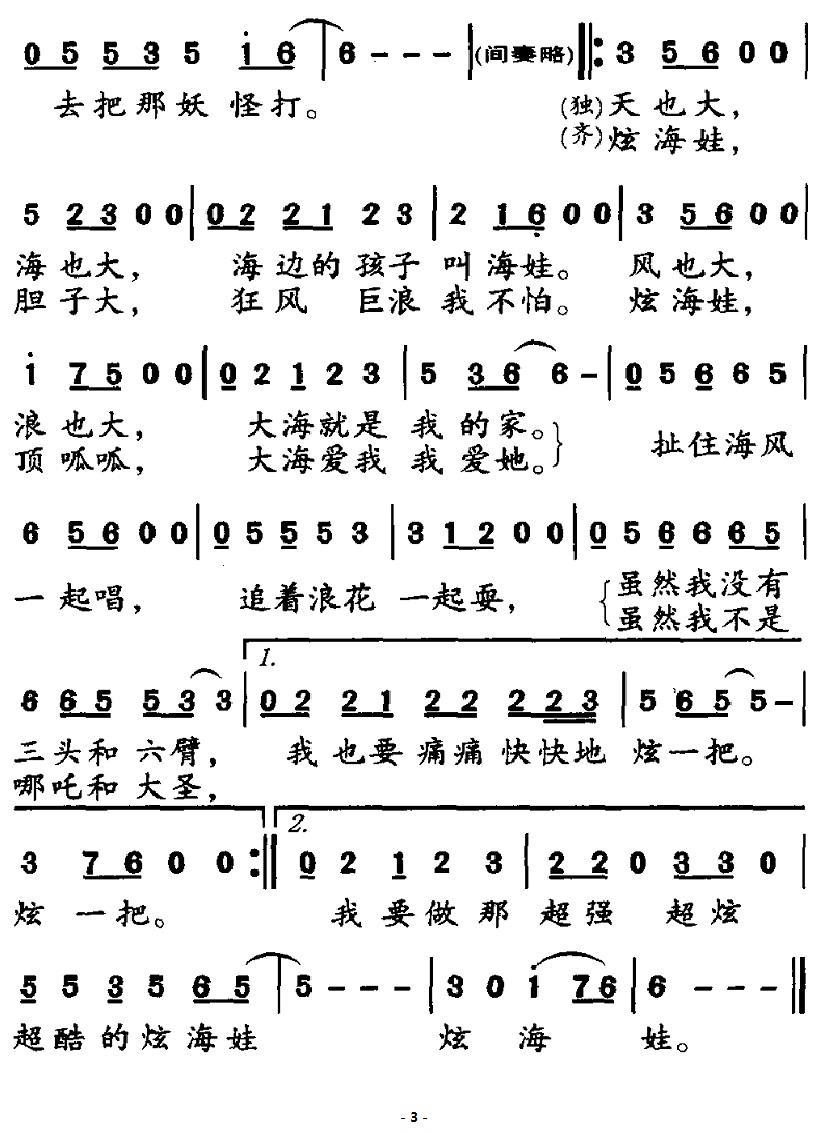 0 5 5 3 5 i 6 | 6 - - - | (间奏略) ‖: 3 5 6 0 0 |
去把那妖 怪打。 (独)天也大，
(齐)炫海娃，
5 2 3 0 0 | 0 2 2 1 2 3 | 2 1 6 0 0 | 3 5 6 0 0 |
海也大， 海边的孩子 叫海娃。 风也大，
胆子大， 狂风 巨浪我不怕。 炫海娃，
i 7 5 0 0 | 0 2 1 2 3 | 5 3 6 6 - | 0 5 6 6 5 |
浪也大， 大海就是 我的家。 扯住海风
顶呱呱， 大海爱我 我爱她。
6 5 6 0 0 | 0 5 5 5 3 | 3 1 2 0 0 | 0 5 6 6 6 5 |
一起唱， 追着浪花 一起耍， 虽然我没有
虽然我不是
1.
6 6 5 5 3 3 | 0 2 2 1 2 2 2 2 3 | 5 6 5 5 - |
三头和六臂， 我也要痛痛快快地 炫一把。
哪吒和大圣，
2.
3 7 6 0 0 :‖ 0 2 1 2 3 | 2 2 0 3 3 0 |
炫一把。 我要做那 超强 超炫
5 5 3 5 6 5 | 5 - - - | 3 0 i 7 6 | 6 - - - ‖
超酷的炫海娃 炫 海 娃。
- 3 -